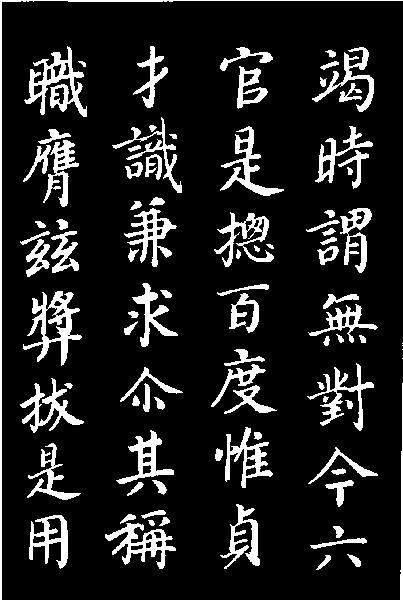 竭時謂無對今六
官是摠百度惟貞
才識兼求尒其稱
職膺茲獎拔是用